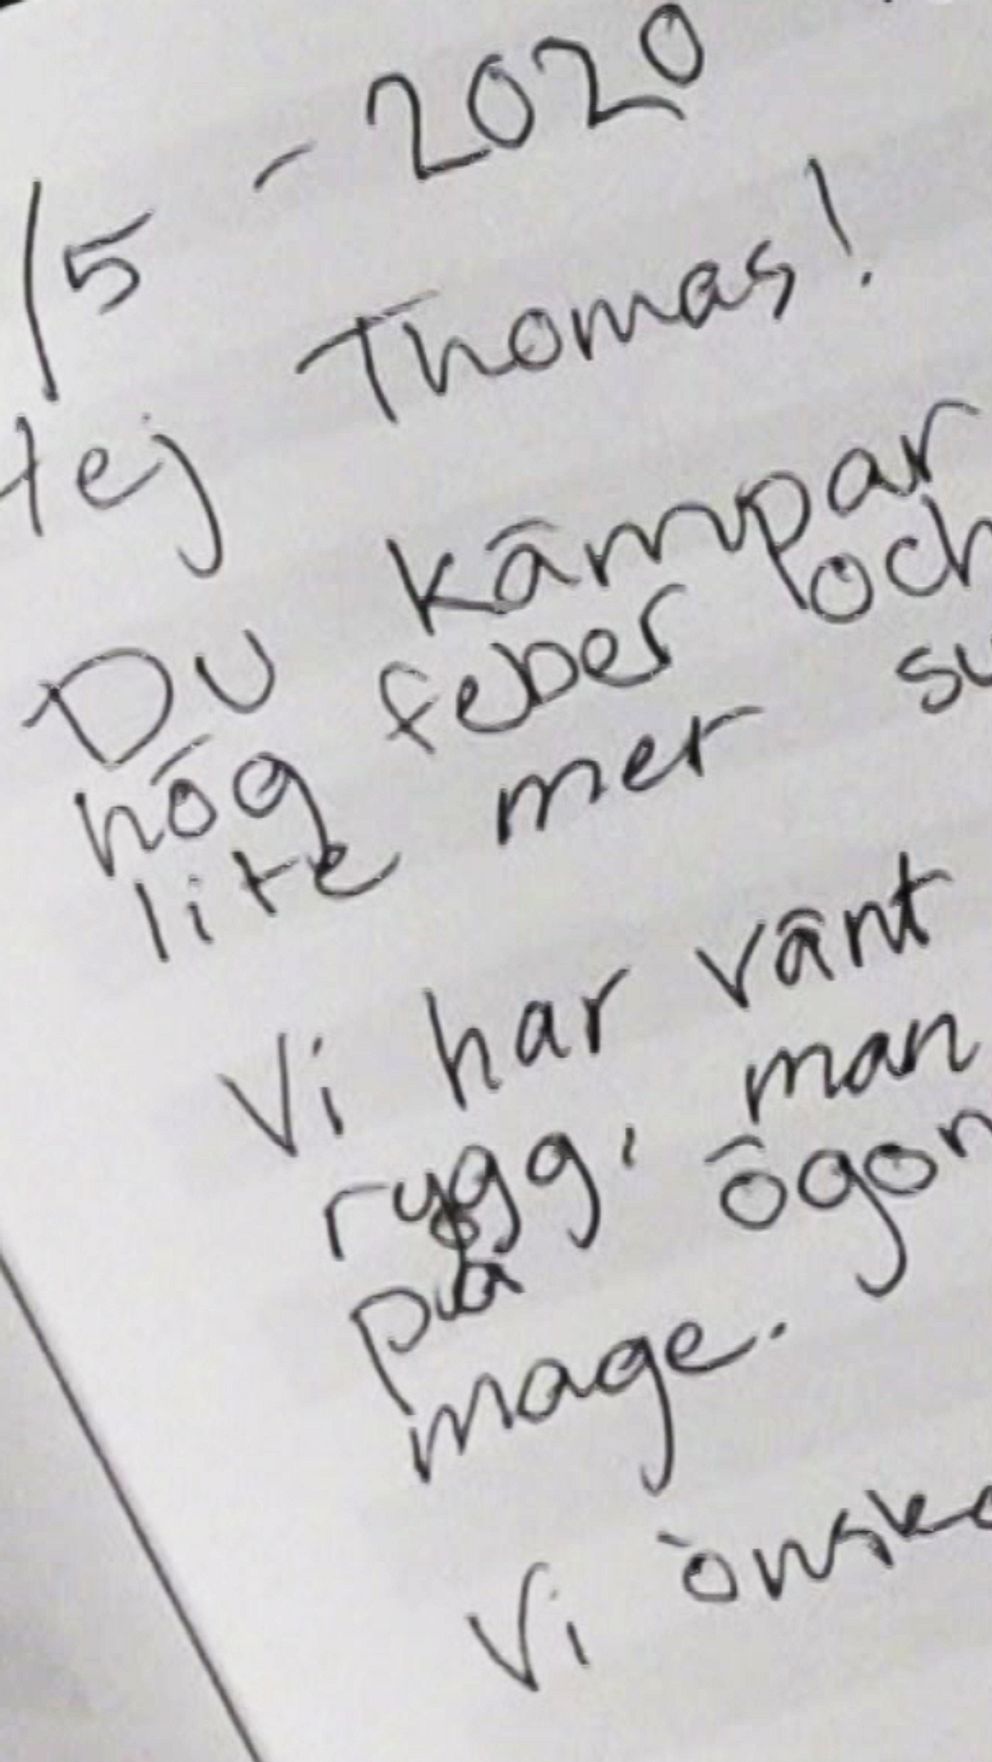 /5 - 2020
Hej Thomas!
Du kämpar
hög feber och
lite mer
Vi har vänt
rygg, man
på ögon
mage.
Vi önska